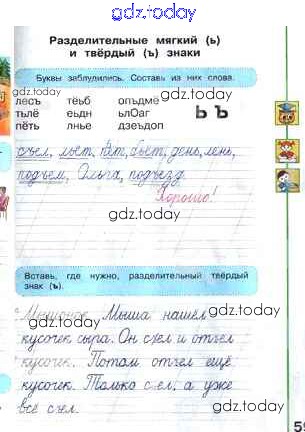 gdz.today
Разделительные мягкий (ь)
и твёрдый (ъ) знаки
gdz.today
Буквы заблудились. Составь из них слова.
лесъ тёьб опъдме gdz.today
тьлё еьдн ьлОаг Ь Ъ
пёть лнье дзеъдоп
съел, льёт, бьёт, день, лень,
подъем, Ольга, подъезд.
Хорошо!
gdz.today
gdz.today
Вставь, где нужно, разделительный твёрдый
знак (ъ).
gdz.today
Мышонок Мыша нашёл
кусочек сыра. Он с ел и от ел
кусочек. Потом от ел ещё
кусочек. Только с ел, а уже
всё с ел.
gdz.today